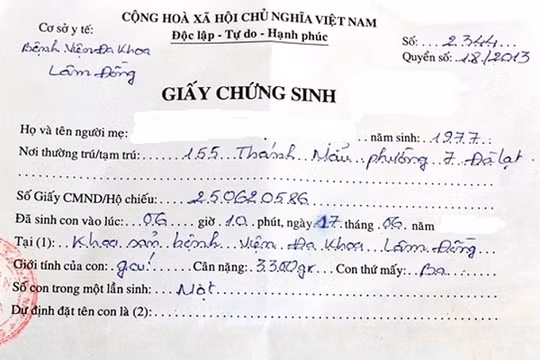 CỘNG HOÀ XÃ HỘI CHỦ NGHĨA VIỆT NAM
Độc lập - Tự do - Hạnh phúc
Cơ sở y tế:
Bệnh Viện Đa Khoa
Lâm Đồng
Số: 2344
Quyển số: 18/2013
GIẤY CHỨNG SINH
Họ và tên người mẹ: năm sinh: 1977
Nơi thường trú/tạm trú: 155 Thánh Mẫu phường 7 Đà lạt
Số Giấy CMND/Hộ chiếu: 250620586
Đã sinh con vào lúc: 06 giờ 10 phút, ngày 17 tháng 06 năm
Tại (1): Khoa sản bệnh viện Đa Khoa Lâm Đồng
Giới tính của con: gái Cân nặng: 3300gr Con thứ mấy: Ba
Số con trong một lần sinh: Một
Dự định đặt tên con là (2):